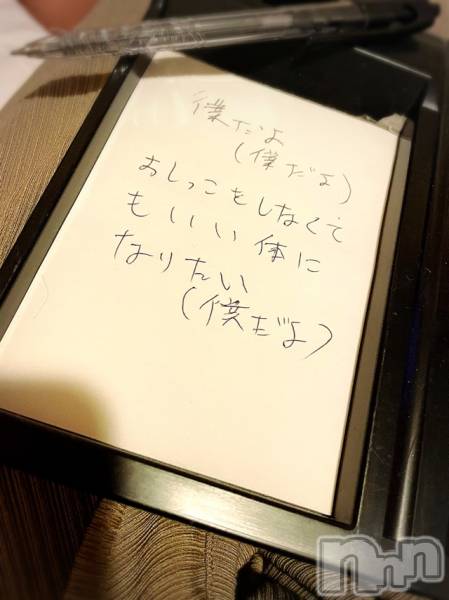 僕だよ
(僕だよ)
おしっこをしなくて
もいいい体に
なりたい
(僕だよ)
nnn